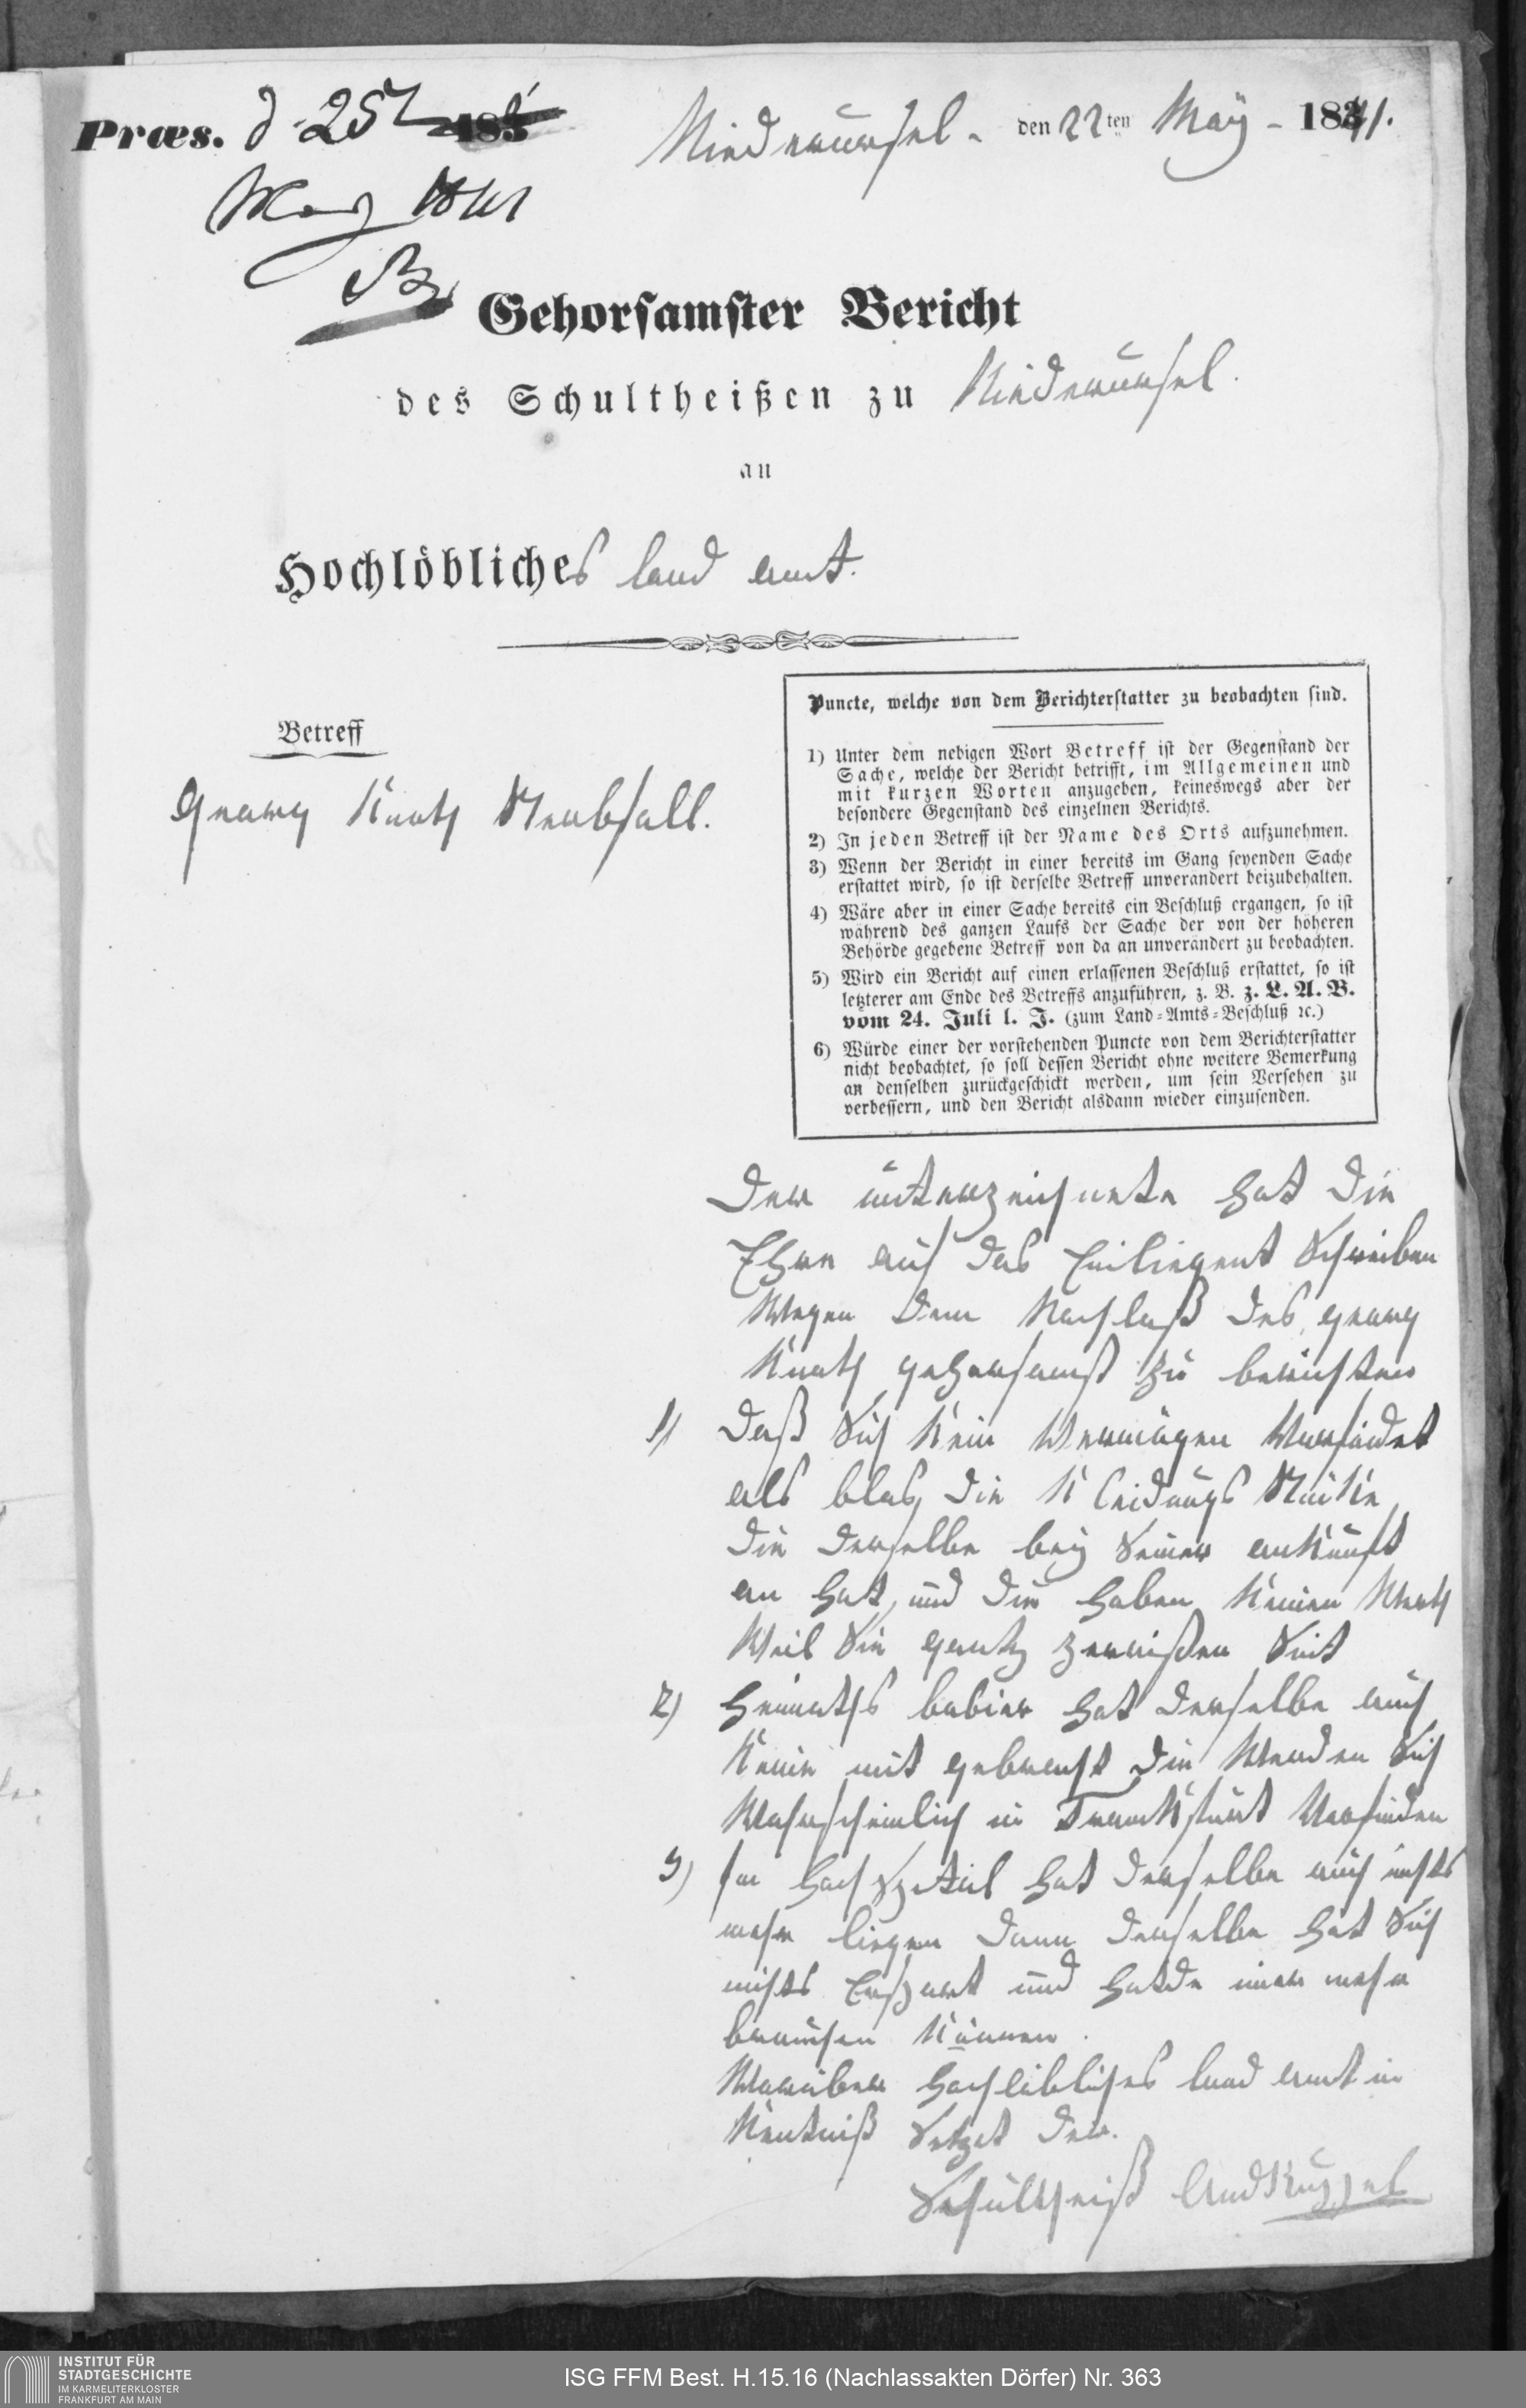 Præs. d. 25t
May 1841
Niederursel. den 22ten May - 1841.
Gehorsamster Bericht
des Schultheißen zu Niederursel.
an
Hochlöbliches land amt.
Betreff
Georg Kurtz Sterbfall.
Puncte, welche von dem Berichterstatter zu beobachten sind.
1) Unter dem nebigen Wort Betreff ist der Gegenstand der
Sache, welche der Bericht betrifft, im Allgemeinen und
mit kurzen Worten anzugeben, keineswegs aber der
besondere Gegenstand des einzelnen Berichts.
2) In jeden Betreff ist der Name des Orts aufzunehmen.
3) Wenn der Bericht in einer bereits im Gang seyenden Sache
erstattet wird, so ist derselbe Betreff unverändert beizubehalten.
4) Wäre aber in einer Sache bereits ein Beschluß ergangen, so ist
während des ganzen Laufs der Sache der von der höheren
Behörde gegebene Betreff von da an unverändert zu beobachten.
5) Wird ein Bericht auf einen erlassenen Beschluß erstattet, so ist
letzterer am Ende des Betreffs anzuführen, z. B. z. L. A. B.
vom 24. Juli l. J. (zum Land-Amts-Beschluß ꝛc.)
6) Würde einer der vorstehenden Puncte von dem Berichterstatter
nicht beobachtet, so soll dessen Bericht ohne weitere Bemerkung
an denselben zurückgeschickt werden, um sein Versehen zu
verbessern, und den Bericht alsdann wieder einzusenden.
Der unterzeichnete hat die
Ehre auf das Einliegent Schreiben
Wegen dem Nachlaß des georg
gehorsamst zu berichten
1) daß Sich Kein Vermögen Vorfindet
als blos die Kleidungs Stücke
die derselbe bey Seiner anKunft
an hat, und die haben Keinen Werth
Weil Sie gantz zerrißen Seit
2) heimaths babier hat derselbe auch
Keine mit gebracht die Werden Sich
Wahrscheinlich in FrancKfurt Vorfinden
3) Im hat derselbe auch nichts
mehr liegen dann derselbe hat Sich
nichts Erspart und hatde imer mehr
brauchen Können.
Worüber hochlöbliches land amt in
Kentniß Setzet der.
Schultheiß
INSTITUT FÜR
STADTGESCHICHTE
IM KARMELITERKLOSTER
FRANKFURT AM MAIN
ISG FFM Best. H.15.16 (Nachlassakten Dörfer) Nr. 363